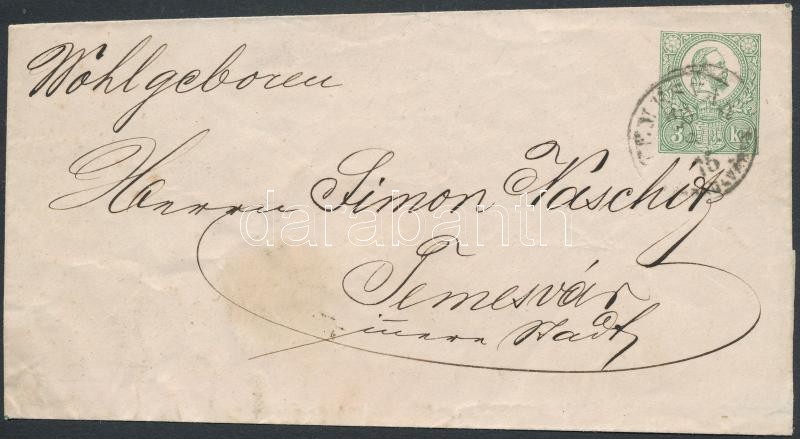 Wohlgeboren
3 kr
75
Herrn Simon Naschitz
darabanth
Temesvár
innere Stadt